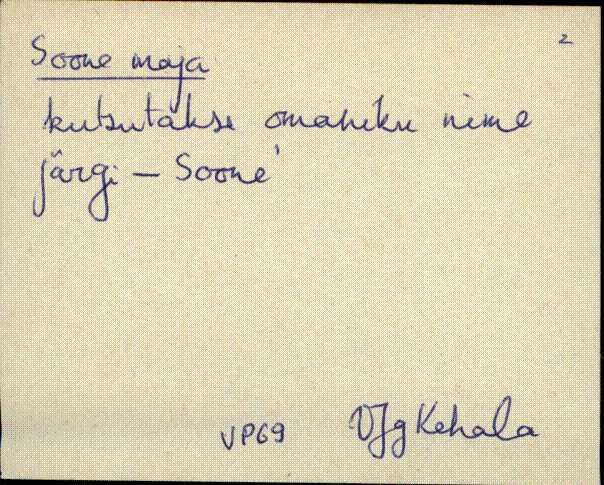 2
Soone maja
kutsutakse omaniku nime
järgi – Soone'
VP69 VJg Kehala